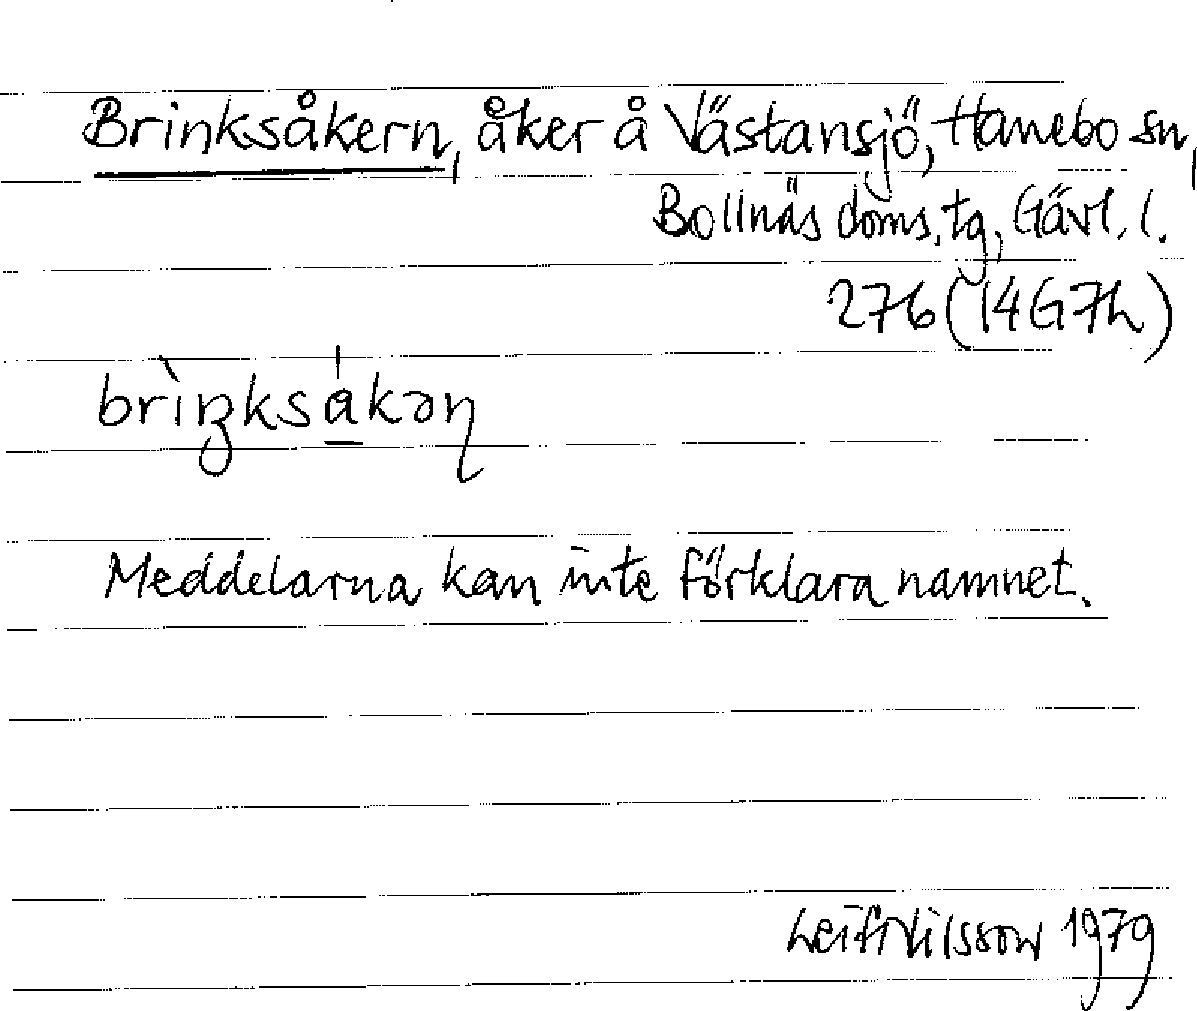 Brinksåkern, åker å Västansjö, Hanebo sn,
Bollnäs doms. tg, Gävl. l.
276 (14G7h)
brìŋksákəɳ
Meddelarna kan inte förklara namnet.
Leif Nilsson 1979